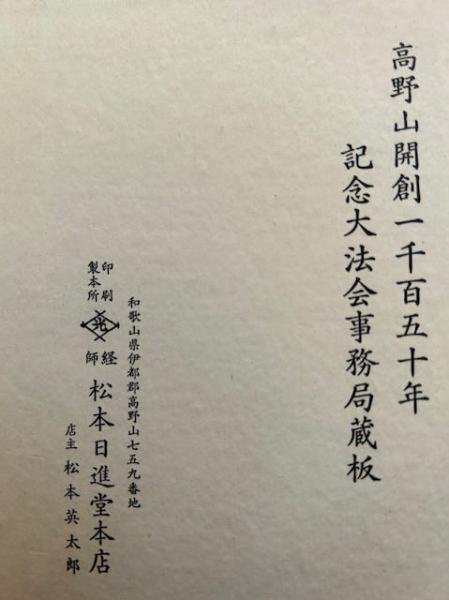 高野山開創一千百五十年
記念大法会事務局蔵板
和歌山県伊都郡高野山七五九番地
印刷
製本所
経師
松本日進堂本店
店主 松本英太郎